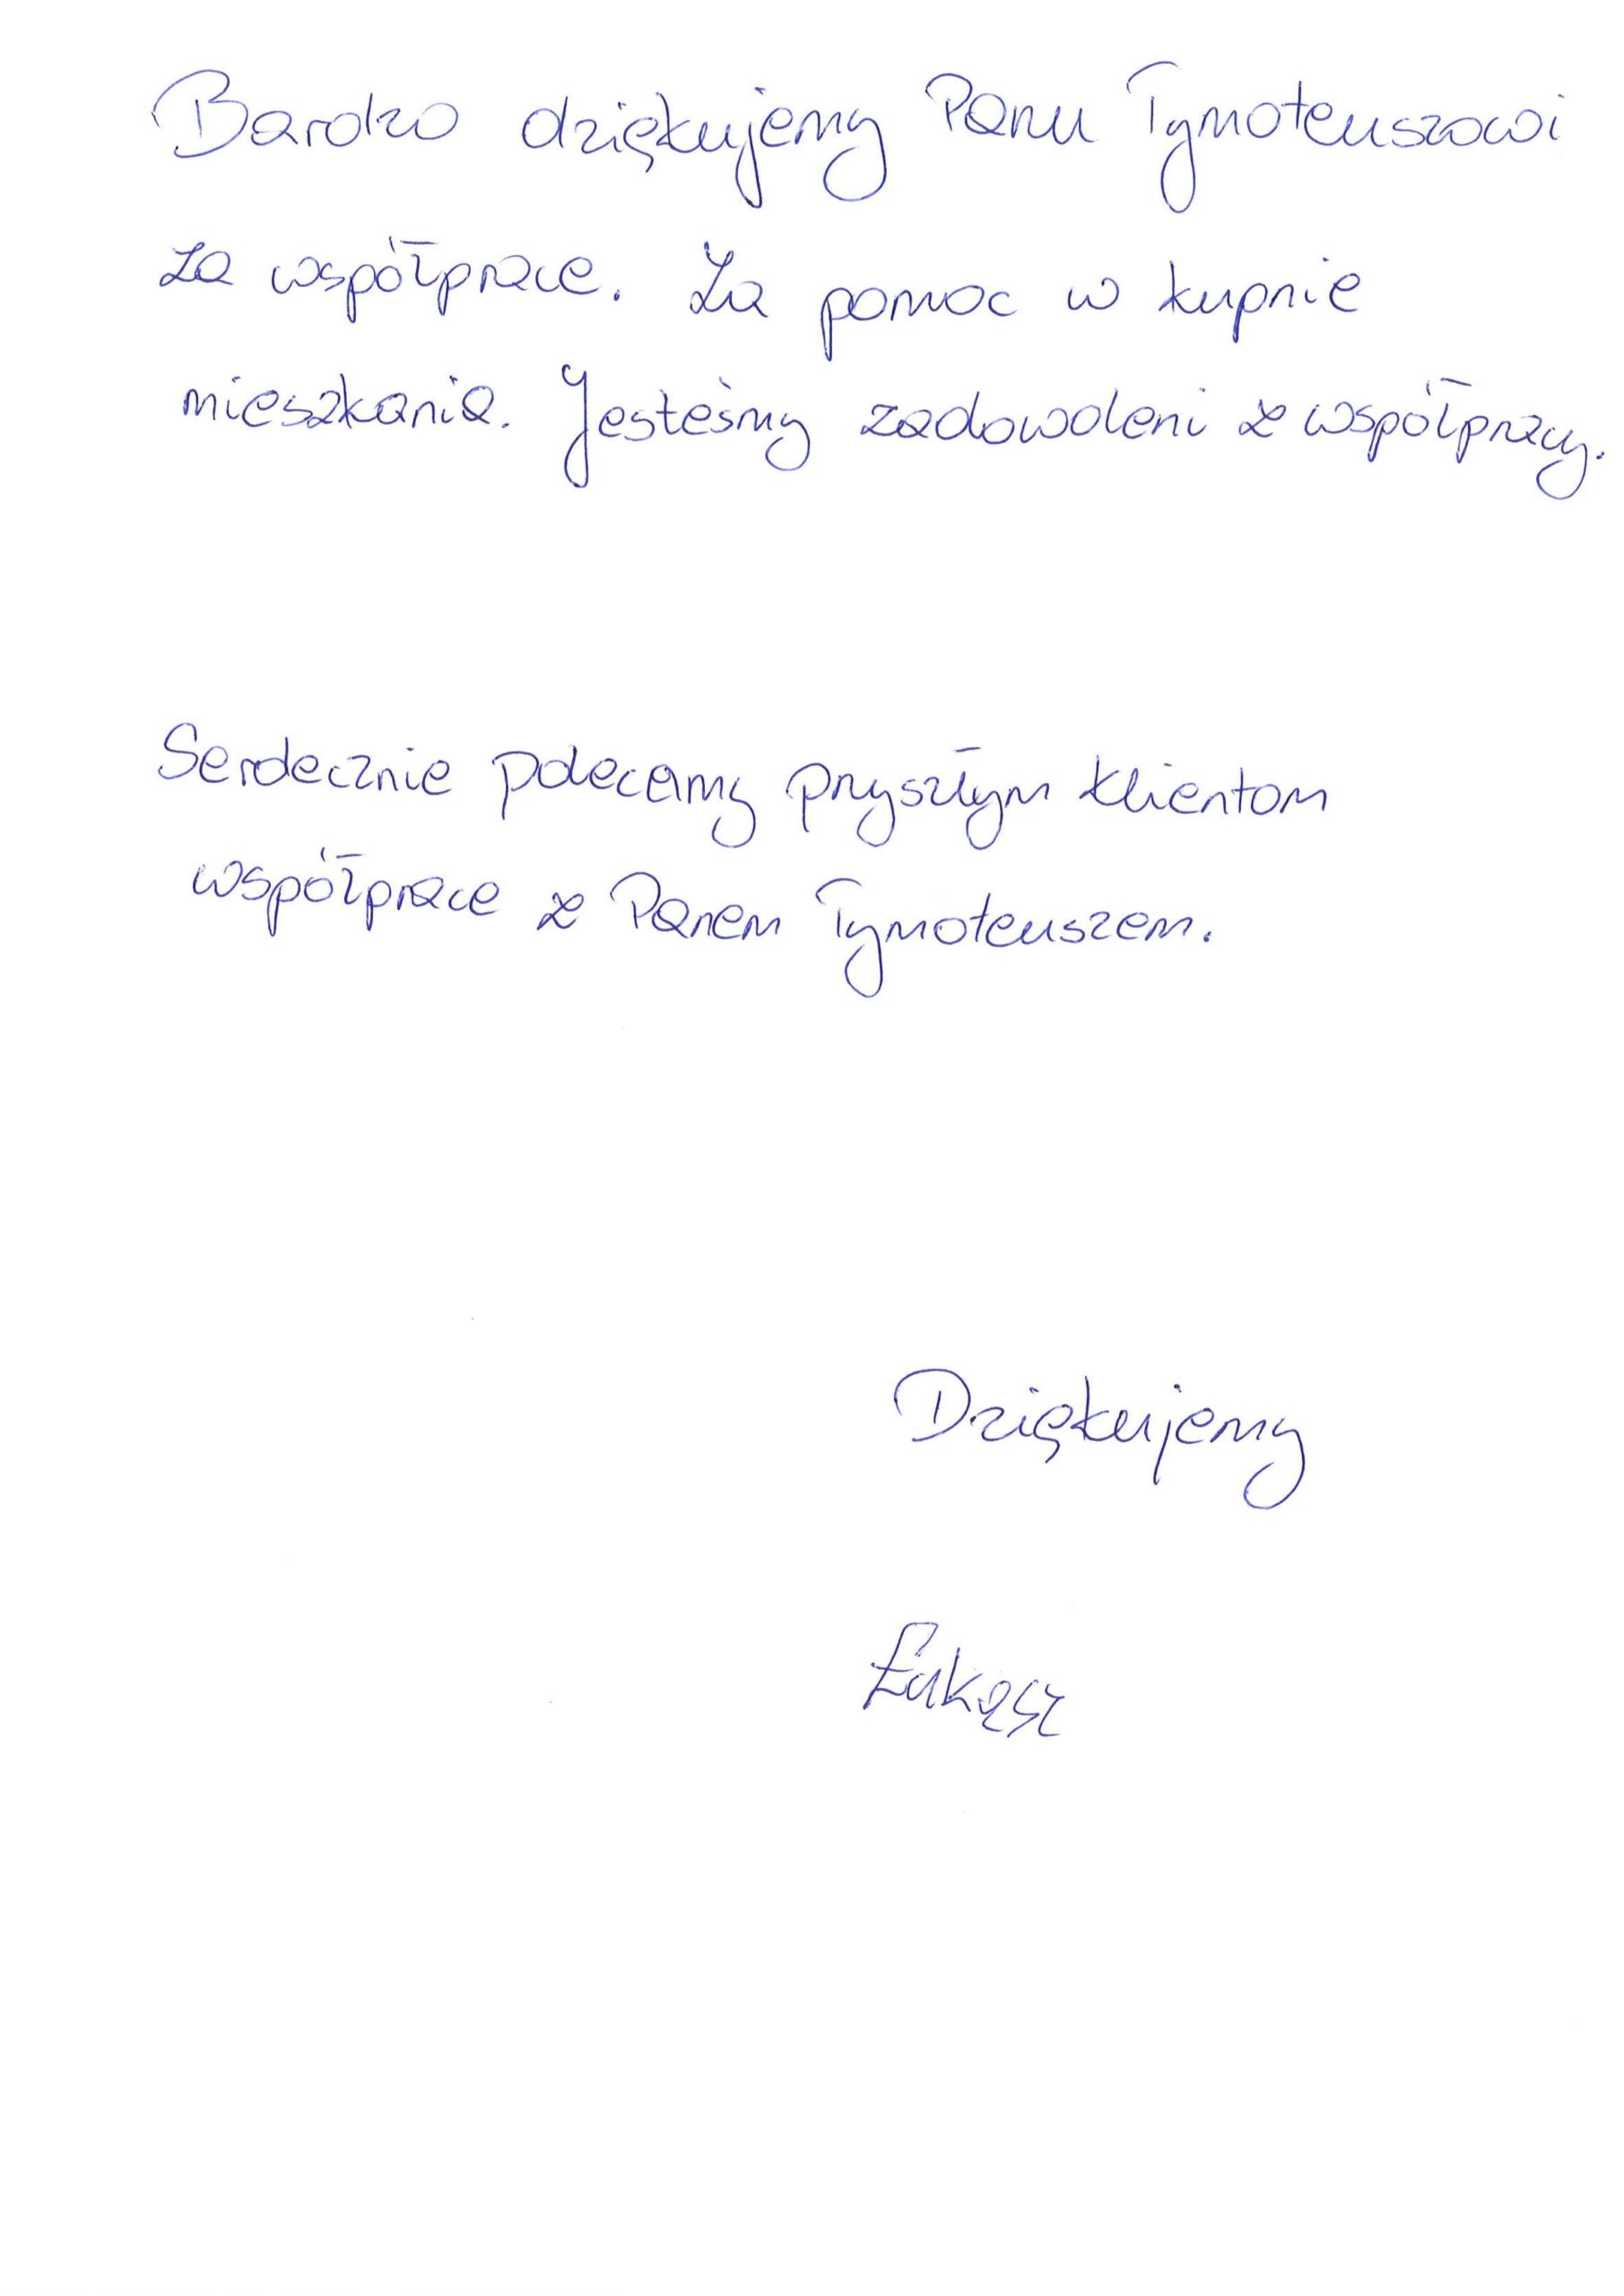 Bardzo dziękujemy Panu Tymoteuszowi
za współprace. Za pomoc w kupnie
mieszkania. Jesteśmy zadowoleni z współpracy.
Serdecznie polecamy przyszłym klientom
współprace z Panem Tymoteuszem.
Dziękujemy
Łukasz